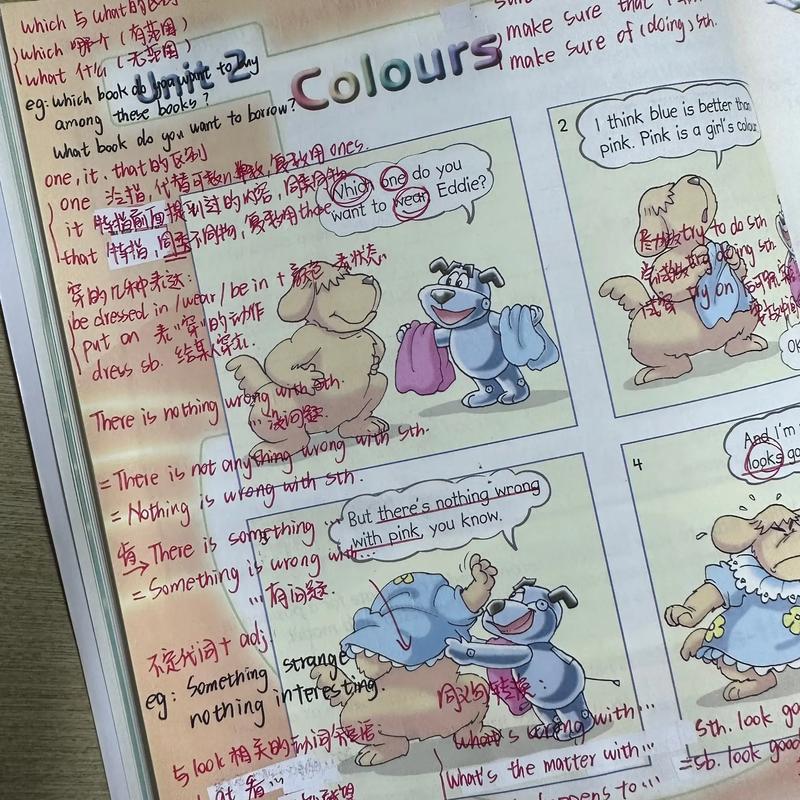 which 与 what的区别
which 哪个（有范围）
what 什么（无范围）
eg: which book do you want to buy
among these books?
what book do you want to borrow?
one, it, that的区别
one 泛指，代替可数n单数，复数用 ones.
it 特指前面提到过的内容，同类同物
that 特指，同类不同物，复数用those
穿的几种表达：
be dressed in / wear / be in + 颜色 表状态
put on 表"穿"的动作
dress sb. 给某人穿衣
There is nothing wrong with sth.
... 没问题
= There is not anything wrong with sth.
= Nothing is wrong with sth.
肯 There is something ...
= Something is wrong with...
... 有问题
不定代词 + adj
eg: Something strange
nothing interesting.
与look相关的动词短语：
at 看
Unit 2
Colours
make sure that
make sure of (doing) sth.
Which one do you
want to wear, Eddie?
2
I think blue is better than
pink. Pink is a girl's
尽力做 try to do sth
try doing sth.
试穿 try on
OK
But there's nothing wrong
with pink, you know.
同义句转换
What's wrong with ...
What's the matter with ...
happens to ...
4
And I'm
looks
sth. look
= sb. look good